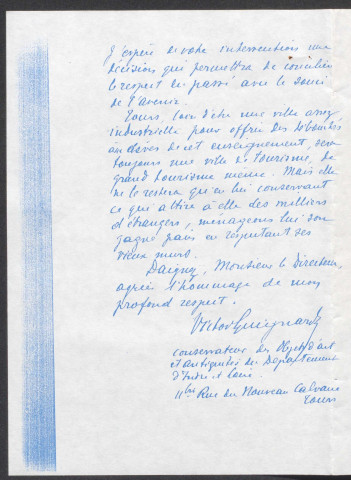 J'espère de votre intervention une
décision qui permettra de concilier
le respect du passé avec le souci
de l'avenir.
Tours, loin d'être une ville assez
industrielle pour offrir des débouchés
aux élèves de cet enseignement, sera
toujours une ville de tourisme, de
grand tourisme même. Mais elle
ne le restera qu'en lui conservant
ce qui attire à elle des milliers
d'étrangers, ménageons lui son
gagne pain en respectant ses
vieux murs.
Daignez, Monsieur le Directeur,
agréer l'hommage de mon
profond respect.
Victor Guignard
conservateur des Objets d'art
et antiquités du Département
d'Indre et Loire
11bis Rue du Nouveau Calvaire
Tours